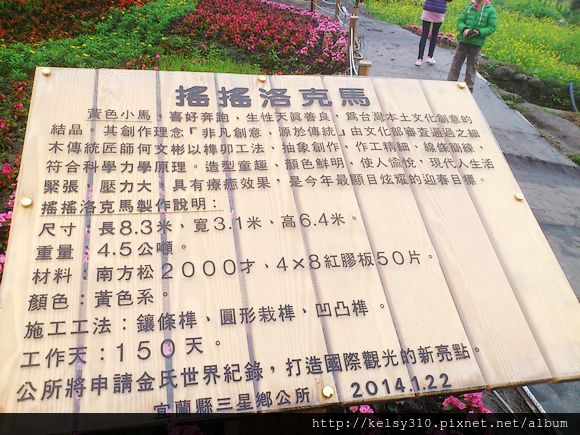 搖搖洛克馬
黃色小馬，喜好奔跑，生性天真善良，為台灣本土文化創意的
結晶。其創作理念「非凡創意，源於傳統」由文化部審查通過之細
木傳統匠師何文彬以榫卯工法、抽象創作、作工精細、線條簡練、
符合科學力學原理。造型童趣、顏色鮮明，使人愉悅，現代人生活
緊張，壓力大，具有療癒效果，是今年最顯目炫耀的迎春目標。
搖搖洛克馬製作說明：
尺寸：長8.3米，寬3.1米、高6.4米。
重量：4.5公噸。
材料：南方松2000才、4×8紅膠板50片。
顏色：黃色系。
施工工法：鑲條榫，圓形栽榫、凹凸榫。
工作天：150天。
公所將申請金氏世界紀錄，打造國際觀光的新亮點。
宜蘭縣三星鄉公所 2014.1.22
http://kelsy310.pixnet.net/album